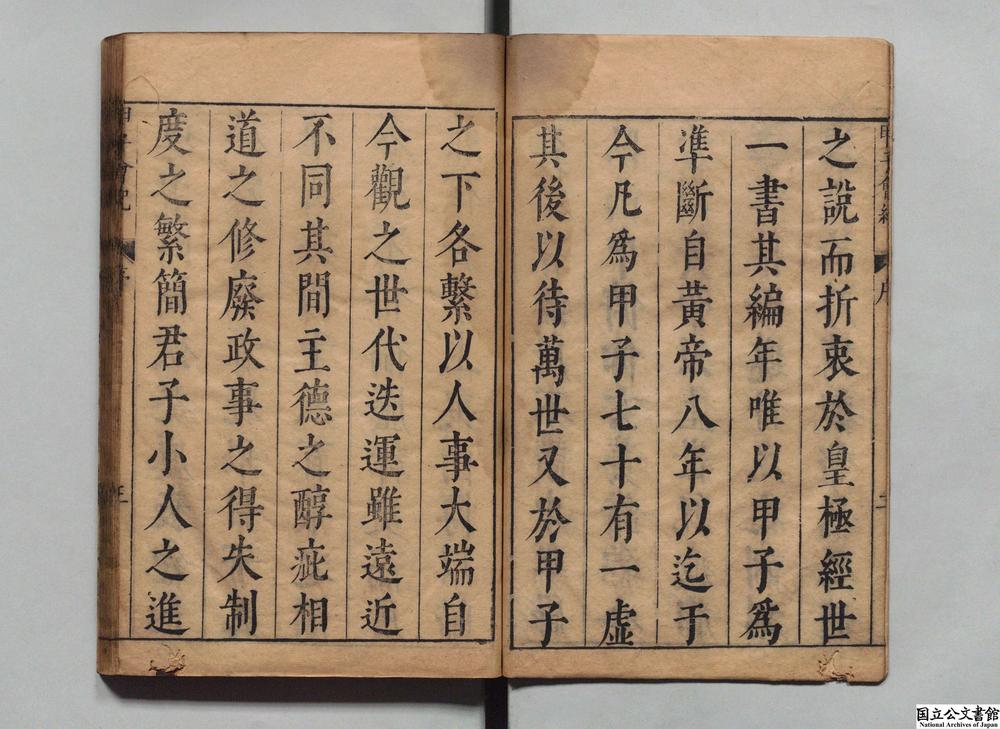 之説而折衷於皇極經世
一書其編年唯以甲子爲
凖斷自黃帝八年以迄于
今凡爲甲子七十有一虛
其後以待萬世又於甲子
之下各繫以人事大端自
今觀之世代迭運雖遠近
不同其間主德之醇疵相
道之修廢政事之得失制
度之繁簡君子小人之進
国立公文書館
National Archives of Japan